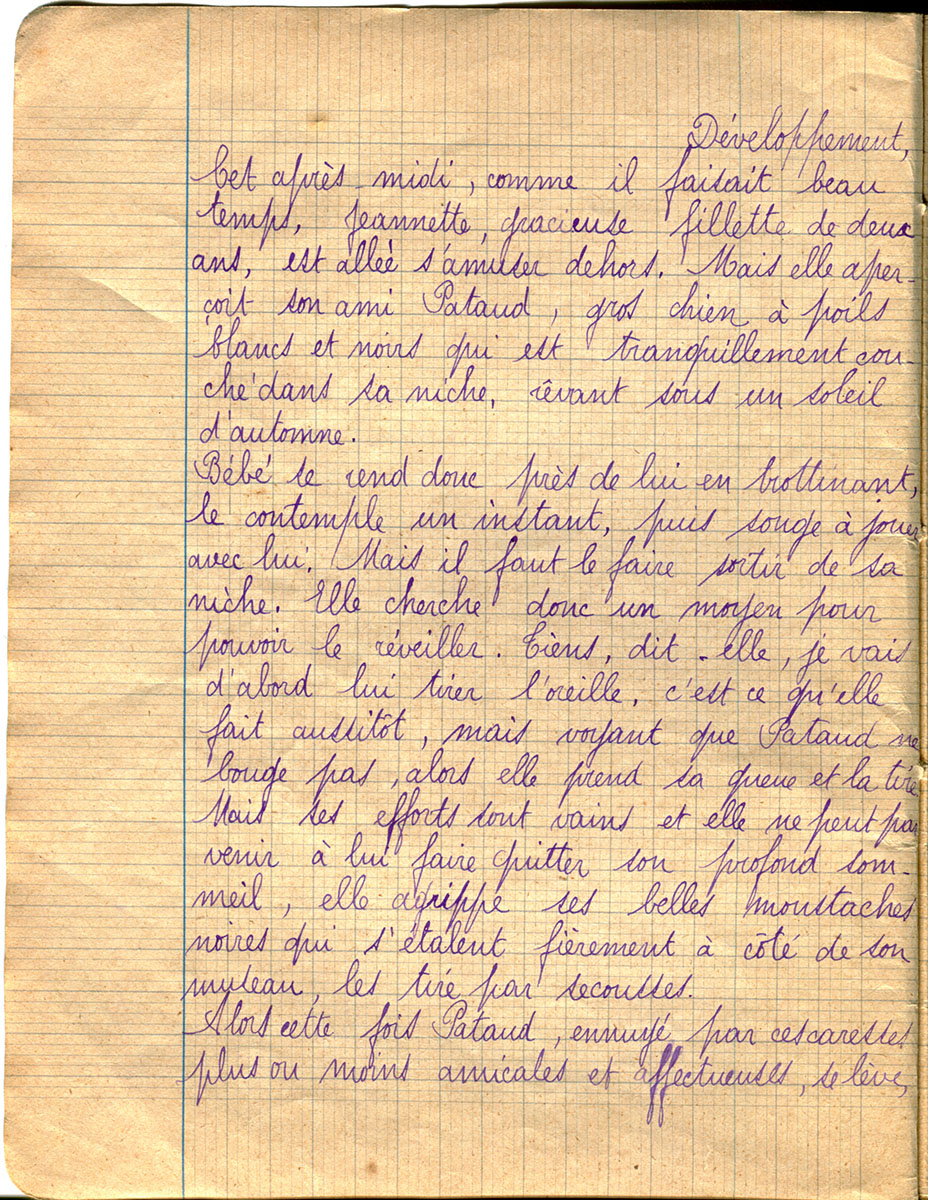 Développement,
Cet après-midi, comme il faisait beau
temps, Jeannette, gracieuse fillette de deux
ans, est allée s'amuser dehors. Mais elle aper-
çoit son ami Pataud, gros chien à poils
blancs et noirs qui est tranquillement cou-
ché dans sa niche, rêvant sous un soleil
d'automne.
Bébé se rend donc près de lui en trottinant,
le contemple un instant, puis songe à jouer
avec lui. Mais il faut le faire sortir de sa
niche. Elle cherche donc un moyen pour
pouvoir le réveiller. Tiens, dit-elle, je vais
d'abord lui tirer l'oreille, c'est ce qu'elle
fait aussitôt, mais voyant que Pataud ne
bouge pas, alors elle prend sa queue et la tire
Mais ses efforts sont vains et elle ne peut par
venir à lui faire quitter son profond som-
meil, elle agrippe ses belles moustaches
noires qui s'étalent fièrement à côté de son
museau, les tire par secousses.
Alors cette fois Pataud, ennuyé par ces caresses
plus ou moins amicales et affectueuses, se lève,